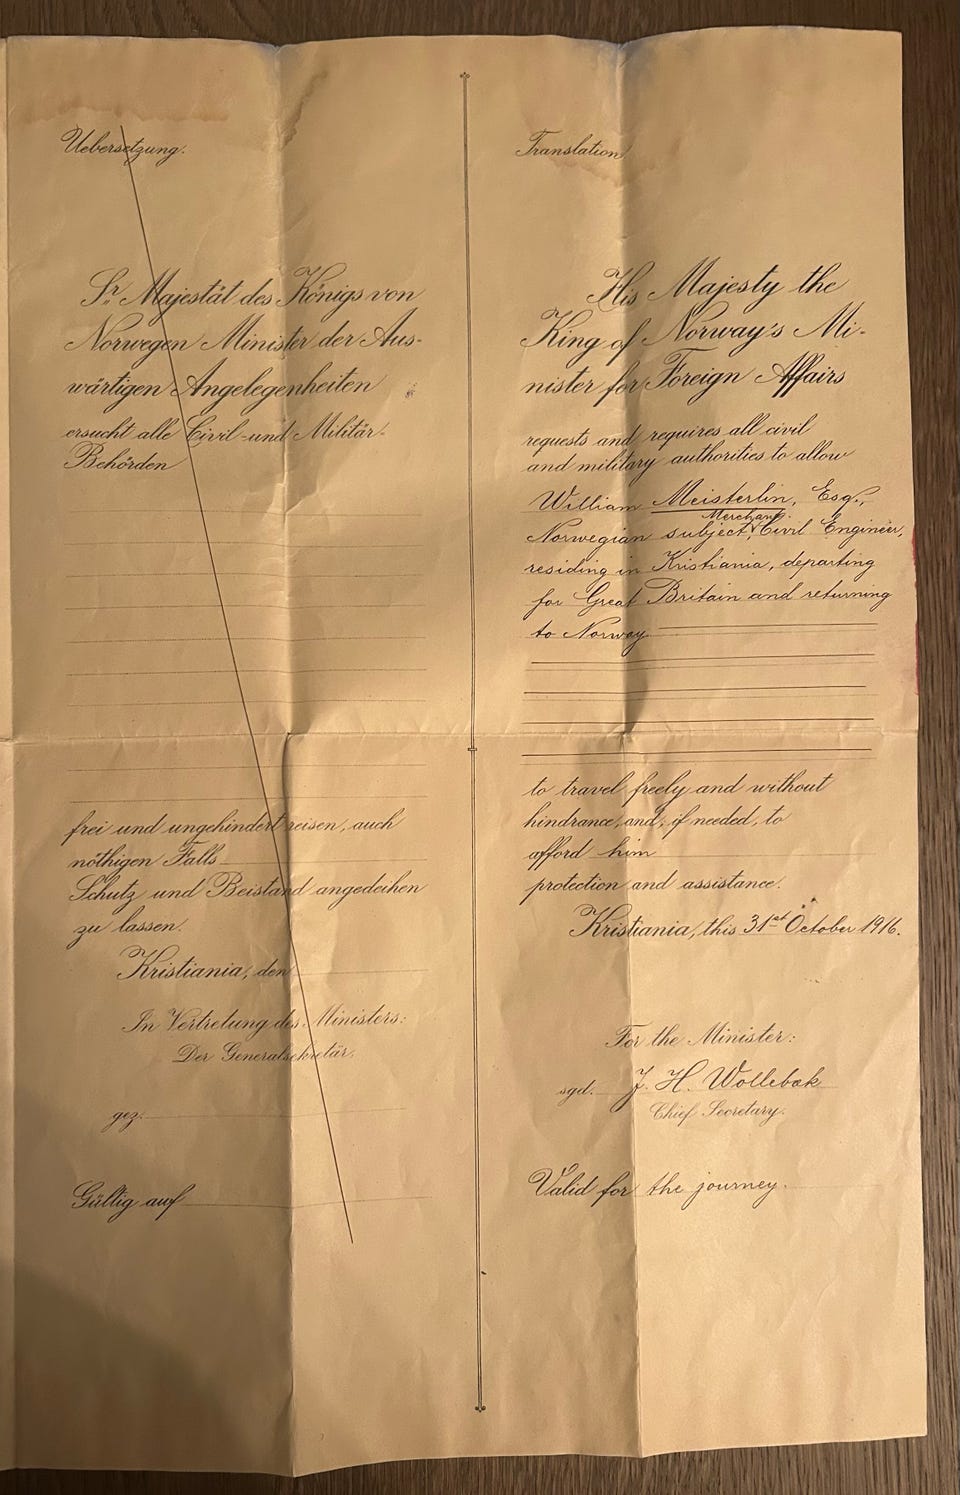 Uebersetzung.
Sr. Majestät des Königs von
Norwegen Minister der Aus-
wärtigen Angelegenheiten
ersucht alle Civil- und Militär-
Behörden
frei und ungehindert reisen, auch
nöthigen Falls
Schutz und Beistand angedeihen
zu lassen.
Kristiania, den
In Vertretung des Ministers:
Der Generalsekretär.
gez.
Gültig auf
Translation
His Majesty the
King of Norway's Mi-
nister for Foreign Affairs
requests and requires all civil
and military authorities to allow
William Meisterlin, Esq.,
Merchant
Norwegian subject, Civil Engineer,
residing in Kristiania, departing
for Great Britain and returning
to Norway
to travel freely and without
hindrance, and, if needed, to
afford him
protection and assistance.
Kristiania, this 31st October 1916.
For the Minister:
sgd. J. H. Wollebæk
Chief Secretary.
Valid for the journey.